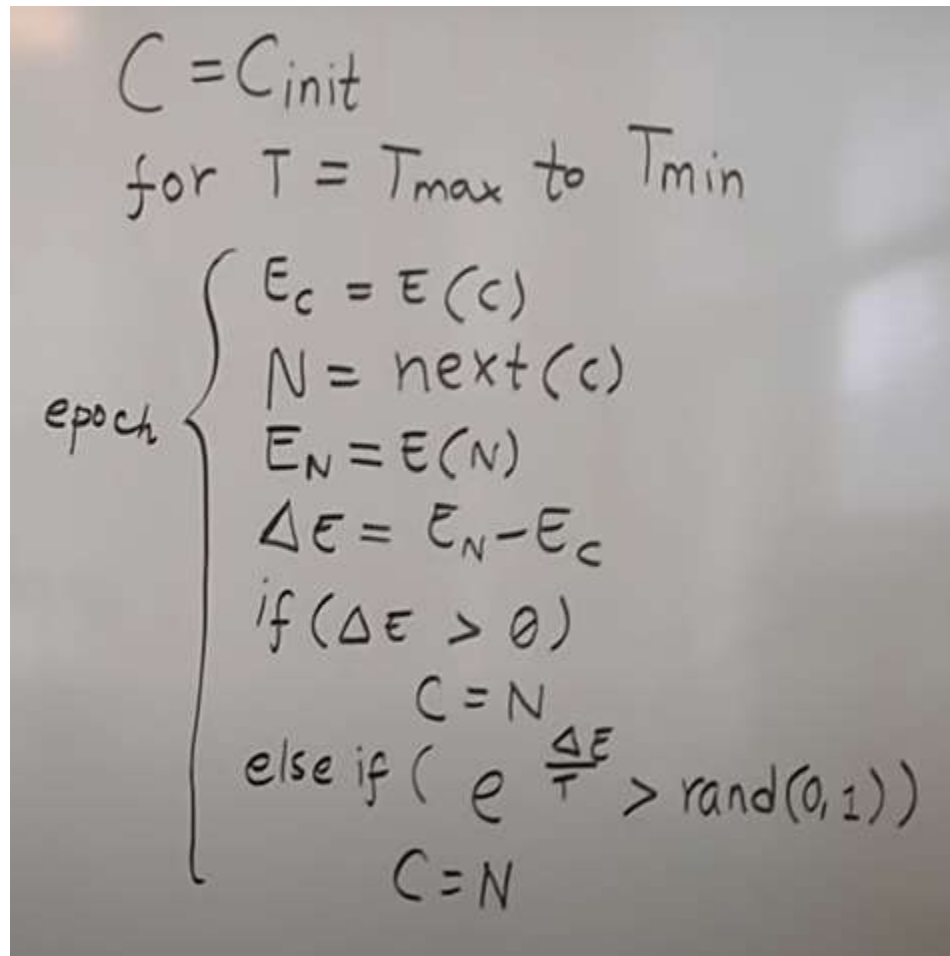 C = Cinit
for T = Tmax to Tmin
Ec = E(c)
N = next(c)
epoch
EN = E(N)
ΔE = EN - Ec
if (ΔE > 0)
C = N
else if ( e^(ΔE/T) > rand(0,1))
C = N